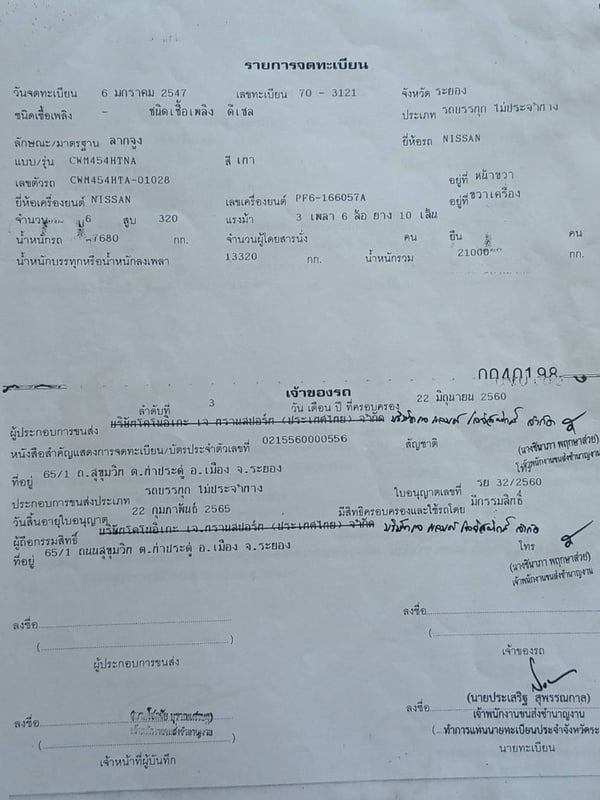 รายการจดทะเบียน
วันจดทะเบียน 6 มกราคม 2547 เลขทะเบียน 70 - 3121 จังหวัด ระยอง
ชนิดเชื้อเพลิง - ชนิดเชื้อเพลิง ดีเซล ประเภท รถบรรทุก ไม่ประจำทาง
ลักษณะ/มาตรฐาน ลากจูง ยี่ห้อรถ NISSAN
แบบ/รุ่น CWM454HTNA สี เทา
เลขตัวรถ CWM454HTA-01028 อยู่ที่ หน้าขวา
ยี่ห้อเครื่องยนต์ NISSAN เลขเครื่องยนต์ PF6-166057A อยู่ที่ ขวาเครื่อง
จำนวน 6 สูบ 320 แรงม้า 3 เพลา 6 ล้อ ยาง 10 เส้น
น้ำหนักรถ 7680 กก. จำนวนผู้โดยสารนั่ง คน ยืน คน
น้ำหนักบรรทุกหรือน้ำหนักลงเพลา 13320 กก. น้ำหนักรวม 21000 กก.
0040198
เจ้าของรถ
ลำดับที่ 3 วัน เดือน ปี ที่ครอบครอง 22 มิถุนายน 2560
ผู้ประกอบการขนส่ง บริษัทโคโนอิเกะ เจ ทรานสปอร์ต (ประเทศไทย) จำกัด
หนังสือสำคัญแสดงการจดทะเบียน/บัตรประจำตัวเลขที่ 0215560000556 สัญชาติ
(นางชินาภา พฤกษาส่วย)
ที่อยู่ 65/1 ถ.สุขุมวิท ต.ท่าประดู่ อ.เมือง จ.ระยอง
ประกอบการขนส่งประเภท รถบรรทุก ไม่ประจำทาง ใบอนุญาตเลขที่ รย 32/2560
วันสิ้นอายุใบอนุญาต 22 กุมภาพันธ์ 2565 มีสิทธิครอบครองและใช้รถโดย มีกรรมสิทธิ์
ผู้ถือกรรมสิทธิ์ บริษัทโคโนอิเกะ เจ ทรานสปอร์ต (ประเทศไทย) จำกัด
ที่อยู่ 65/1 ถนนสุขุมวิท ต.ท่าประดู่ อ.เมือง จ.ระยอง โทร
(นางชินาภา พฤกษาส่วย)
เจ้าพนักงานขนส่งชำนาญงาน
ลงชื่อ ลงชื่อ
ผู้ประกอบการขนส่ง เจ้าของรถ
(นายประเสริฐ สุพรรณกาล)
ลงชื่อ ลงชื่อ เจ้าพนักงานขนส่งชำนาญงาน
เจ้าพนักงานขนส่งชำนาญงาน (ทำการแทนนายทะเบียนประจำจังหวัดระ
เจ้าหน้าที่ผู้บันทึก นายทะเบียน